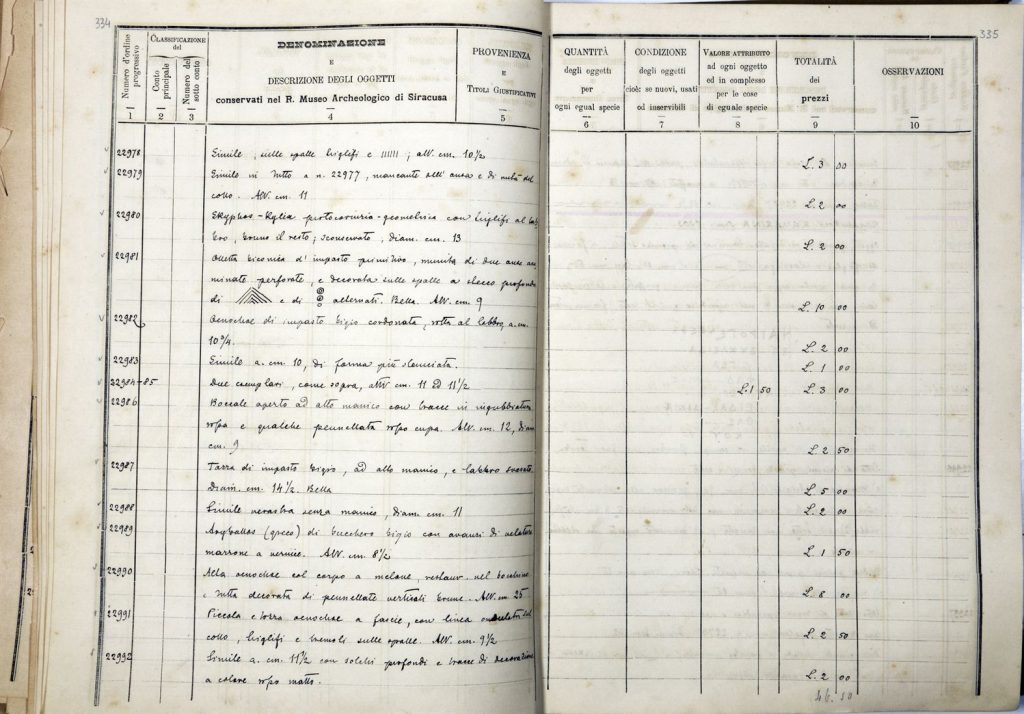 334
335
Numero d'ordine progressivo
CLASSIFICAZIONE del
Conto principale
Numero del sotto conto
DENOMINAZIONE
E
DESCRIZIONE DEGLI OGGETTI
conservati nel R. Museo Archeologico di Siracusa
PROVENIENZA
E
TITOLI GIUSTIFICATIVI
QUANTITÀ
degli oggetti
per
ogni egual specie
CONDIZIONE
degli oggetti
cioè: se nuovi, usati
od inservibili
VALORE ATTRIBUITO
ad ogni oggetto
ed in complesso
per le cose
di eguale specie
TOTALITÀ
dei
prezzi
OSSERVAZIONI
1 2 3 4 5 6 7 8 9 10
22978 Simile, sulle spalle triglifi e ||||||; alt. cm. 10 1/2 L. 3 00
22979 Simile in tutto a n. 22977, mancante dell'ansa e di metà del
collo. Alt. cm. 11 L. 2 00
22980 Skyphos-Kylix protocorinzia-geometrica con triglifi al lab-
bro, bruno il resto; sconservato; diam. cm. 13 L. 2 00
22981 Olletta biconica d'impasto primitivo, munita di due anse
minate perforate, e decorata sulle spalle a stecco profondo
di e di alternati. Bella. Alt. cm. 9 L. 10 00
22982 Oenochoe di impasto bigio cordonata, rotta al labbro, a. cm.
10 3/4. L. 2 00
22983 Simile a. cm. 10, di forma più slanciata. L. 1 00
22984-85 Due esemplari, come sopra, alt. cm. 11 ed 11 1/2 L. 1 50 L. 3 00
22986 Boccale aperto ad alto manico con tracce di ingubbiatura
rossa e qualche pennellata rosso cupa. Alt. cm. 12, diam.
cm. 9 L. 2 50
22987 Tazza di impasto bigio, ad alto manico, e labbro svasato.
Diam. cm. 14 1/2. Bella L. 5 00
22988 Simile nerastra senza manico, diam. cm. 11 L. 2 00
22989 Aryballos (greco) di bucchero bigio con avanzi di velatura
marrone a vernice. Alt. cm. 8 1/2 L. 1 50
22990 Alta oenochoe col corpo a melone, restaur. nel
e tutta decorata di pennellate verticali brune. Alt. cm. 25 L. 8 00
22991 Piccola e tozza oenochoe a fascie, con linea ondulata sul
collo, triglifi e tremoli sulle spalle. Alt. cm. 9 1/2 L. 2 50
22992 Simile a. cm. 11 1/2 con solchi profondi e tracce di decorazione
a colore rosso matto. L. 2 00